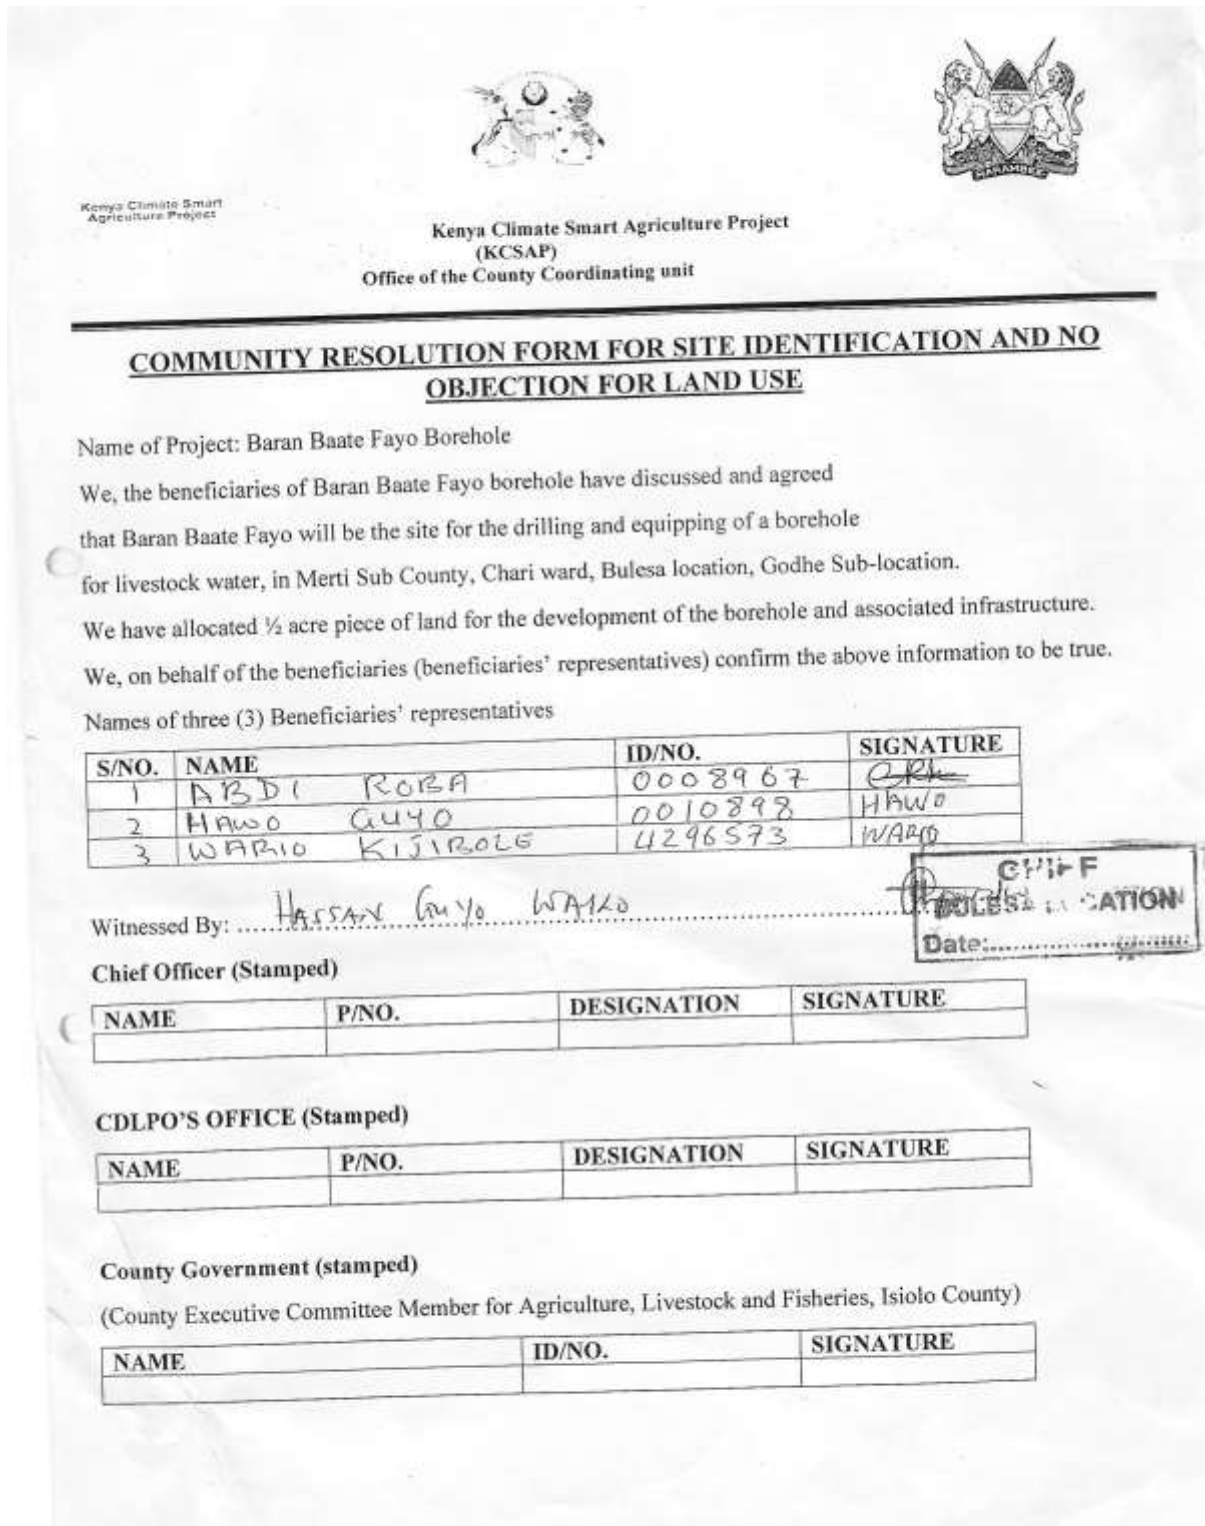 HARAMBEE
Kenya Climate Smart
Agriculture Project
Kenya Climate Smart Agriculture Project
(KCSAP)
Office of the County Coordinating unit
COMMUNITY RESOLUTION FORM FOR SITE IDENTIFICATION AND NO
OBJECTION FOR LAND USE
Name of Project: Baran Baate Fayo Borehole
We, the beneficiaries of Baran Baate Fayo borehole have discussed and agreed
that Baran Baate Fayo will be the site for the drilling and equipping of a borehole
for livestock water, in Merti Sub County, Chari ward, Bulesa location, Godhe Sub-location.
We have allocated ½ acre piece of land for the development of the borehole and associated infrastructure.
We, on behalf of the beneficiaries (beneficiaries' representatives) confirm the above information to be true.
Names of three (3) Beneficiaries' representatives
S/NO. NAME ID/NO. SIGNATURE
1 ABDI ROBA 0008967
2 HAWO GUYO 0010898 HAWO
3 WARIO KIJIROLE 4296573 WARIO
CHIEF
Witnessed By: HASSAN GUYO WAKO
BULESA LOCATION
Date:
Chief Officer (Stamped)
NAME P/NO. DESIGNATION SIGNATURE
CDLPO'S OFFICE (Stamped)
NAME P/NO. DESIGNATION SIGNATURE
County Government (stamped)
(County Executive Committee Member for Agriculture, Livestock and Fisheries, Isiolo County)
NAME ID/NO. SIGNATURE